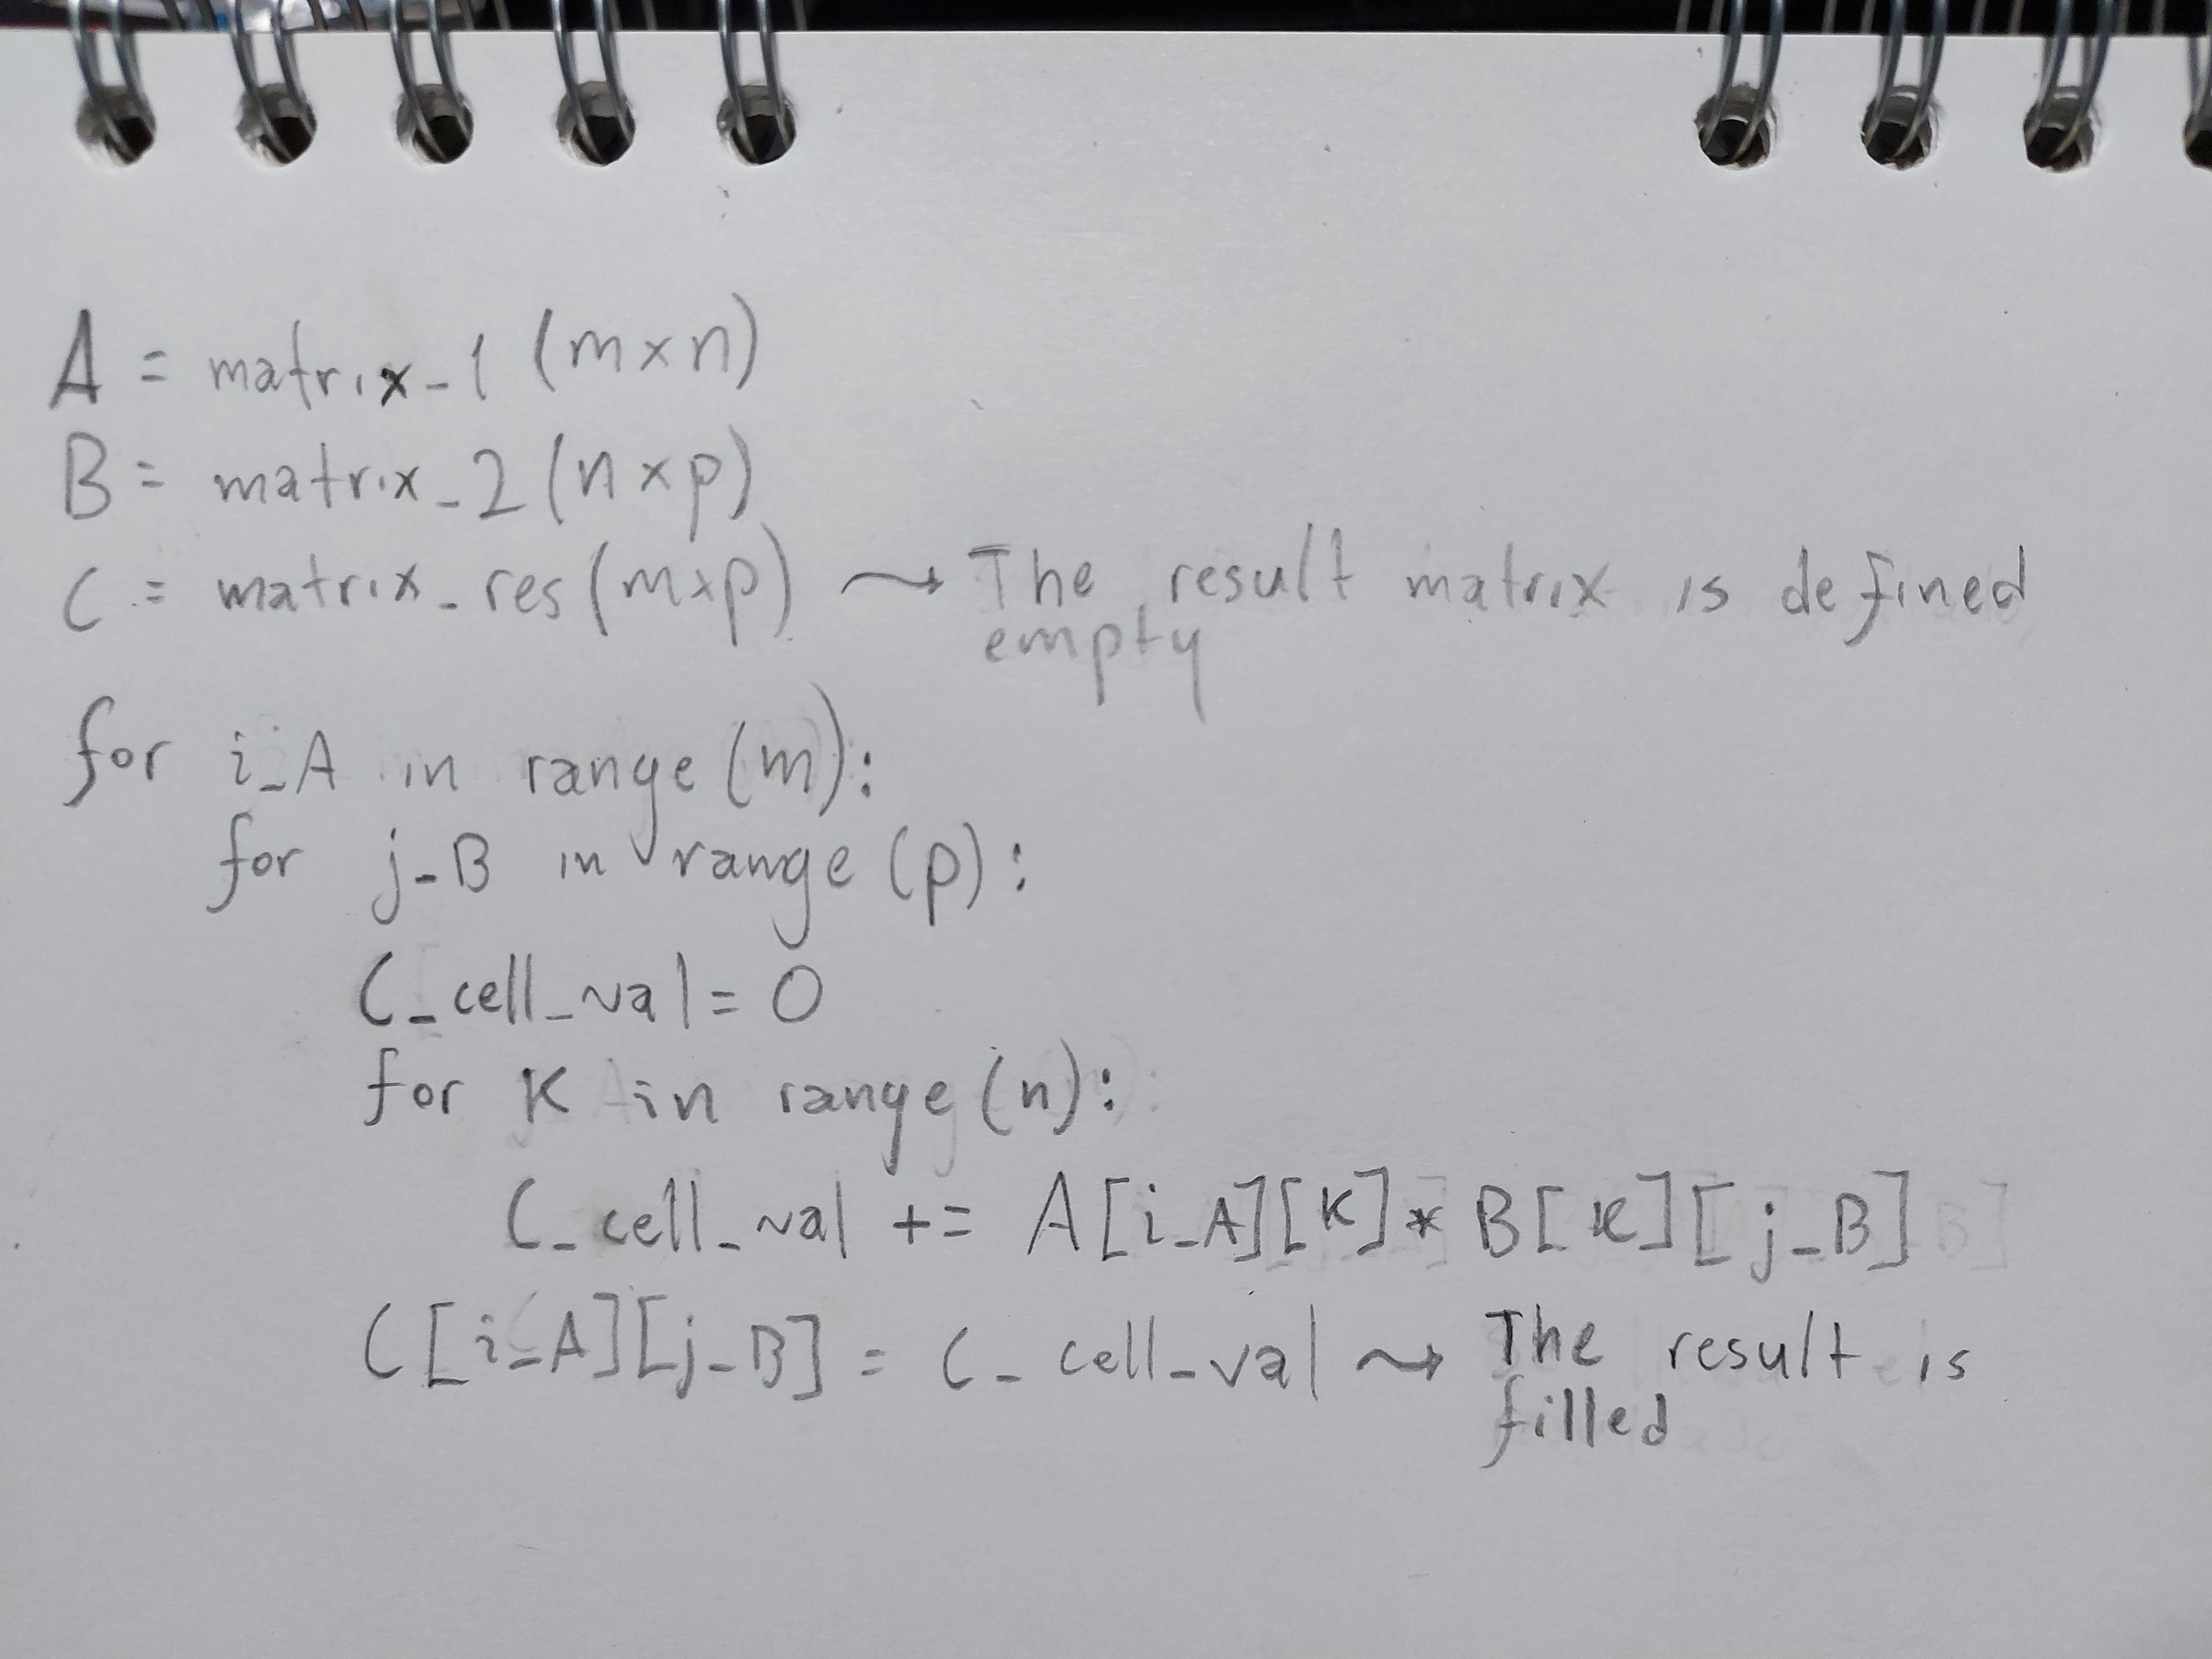 A = matrix_1 (m×n)
B = matrix_2 (n×p)
C = matrix_res (m×p) ⇝ The result matrix is defined
empty
for i_A in range (m):
for j_B in range (p):
C_cell_val = 0
for K in range (n):
C_cell_val += A[i_A][K] * B[K][j_B]
C[i_A][j_B] = C_cell_val ⇝ The result is
filled